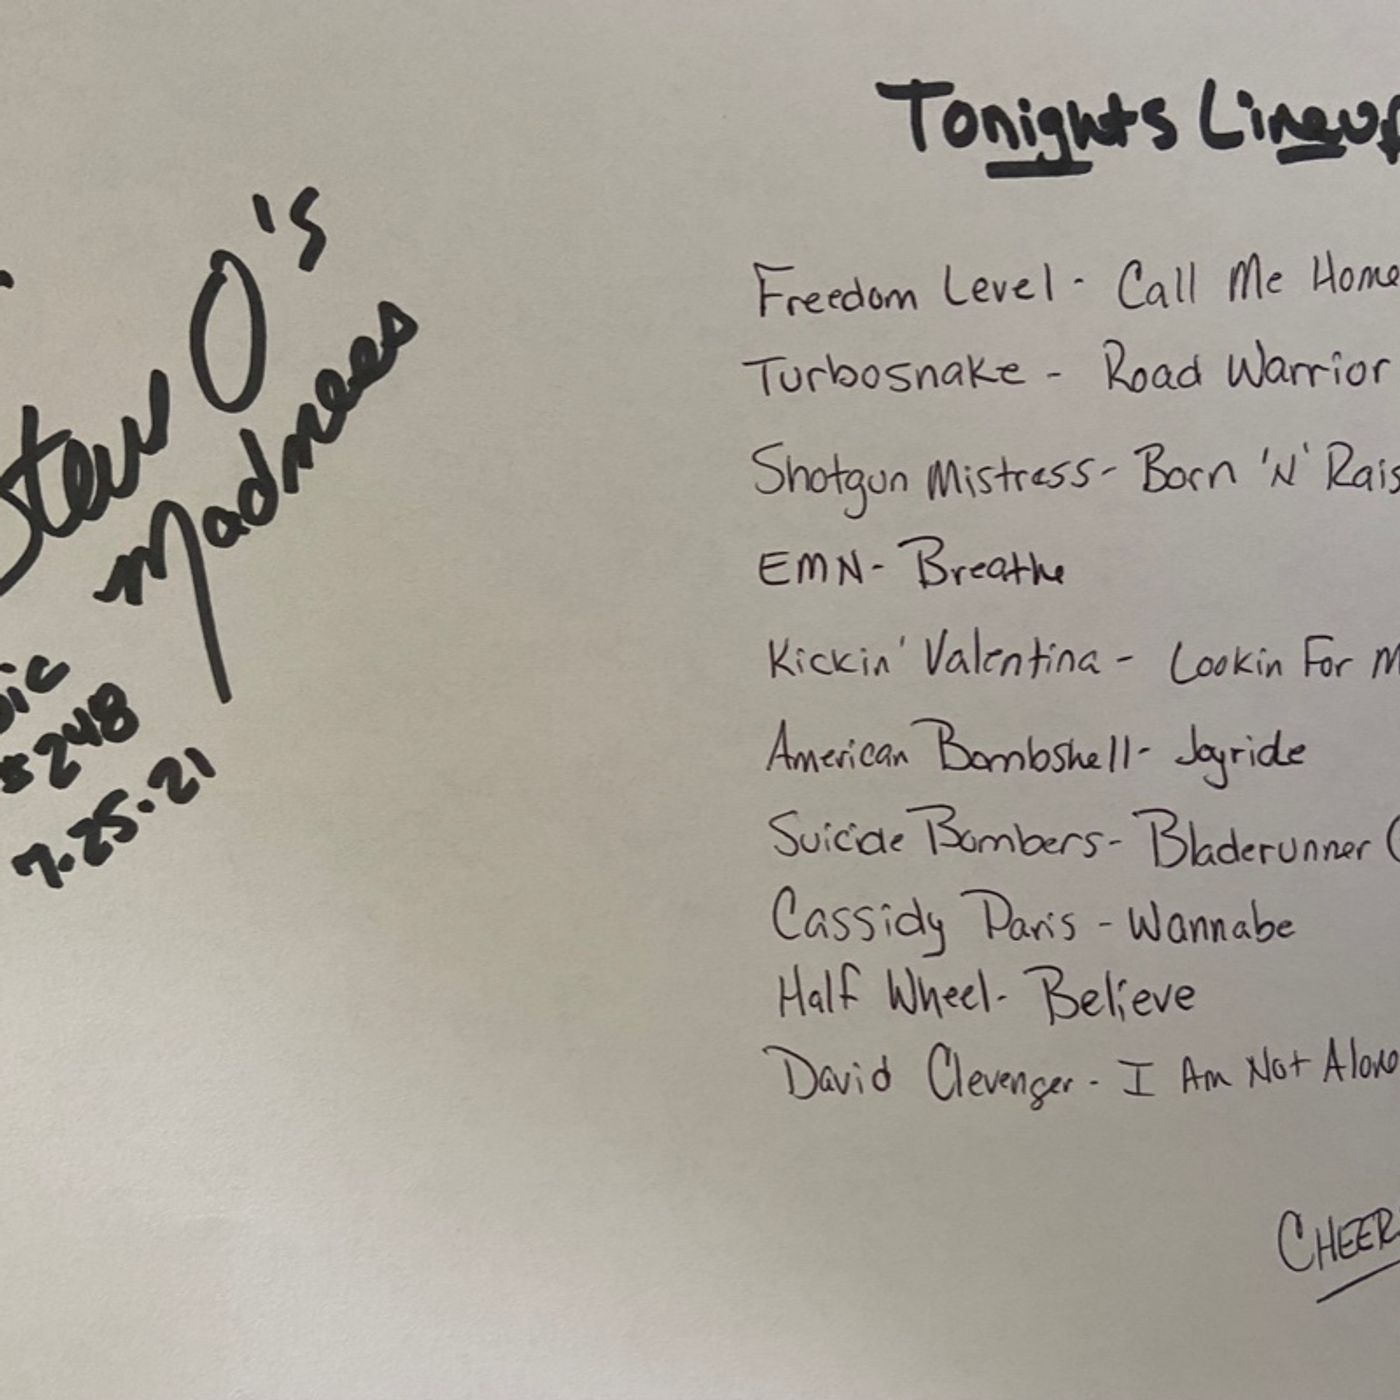 Tonights Lineup
Freedom Level - Call Me Home
Turbosnake - Road Warrior
Shotgun Mistress - Born 'N' Rais
EMN - Breathe
Kickin' Valentina - Lookin For M
American Bombshell - Joyride
Suicide Bombers - Bladerunner (
Cassidy Paris - Wannabe
Half Wheel - Believe
David Clevenger - I Am Not Alone
CHEER
Stew O's
Madness
#248
7.25.21